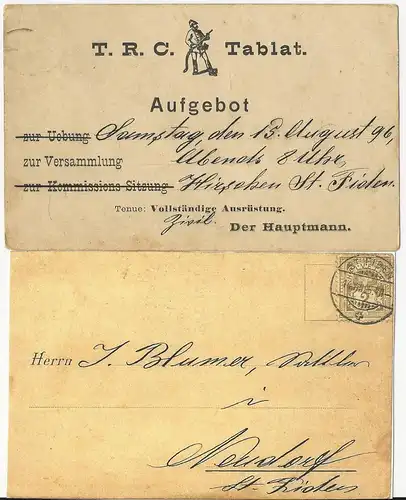 T. R. C. Tablat.
Aufgebot
zur Uebung Samstag, den 15. August 96,
zur Versammlung Abends 8 Uhr,
zur Kommissions Sitzung Hirschen St. Fiden.
Tenue: Vollständige Ausrüstung.
Zivil. Der Hauptmann.
Herrn J. Blumer, Sattler
i
Neudorf
St. Fiden